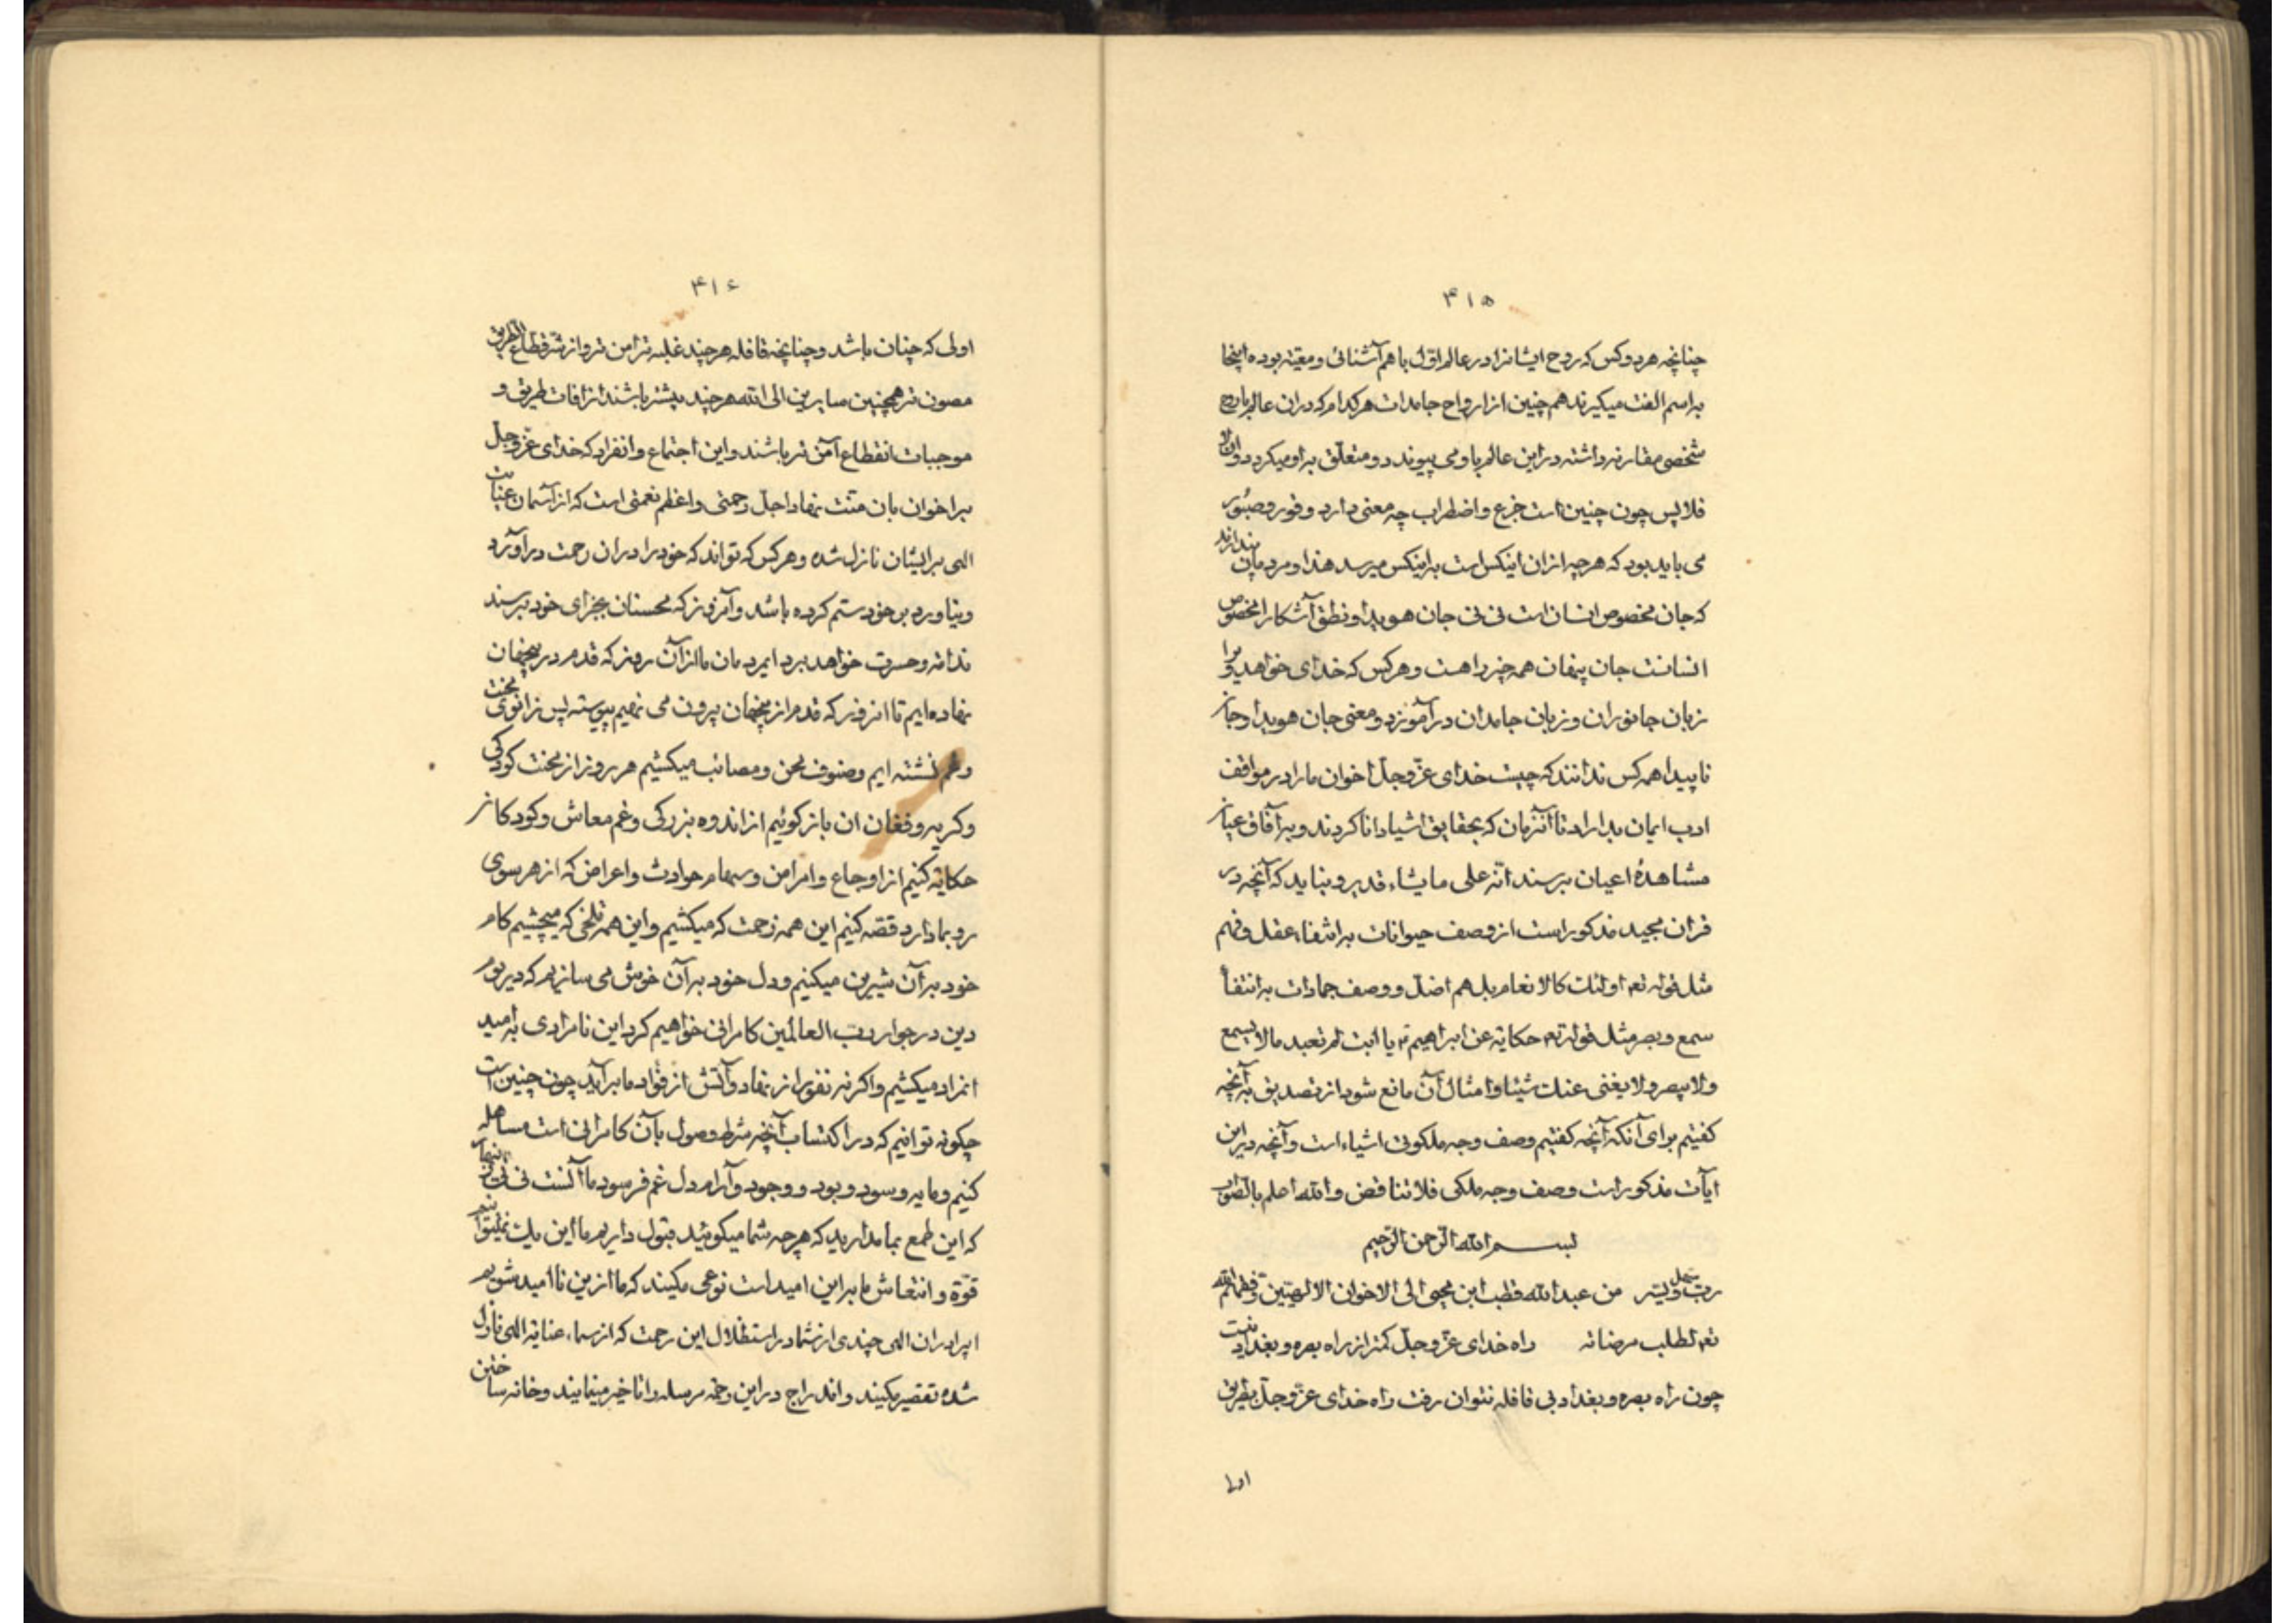 ۴۱۵
چنانچه هر دو کس که روح ایشانرا در عالم اوّل باهم آشنائی و معیّته بوده اینجا
براسم الفت میگیرند همچنین از ارواح جامدات هرکدام که دران عالم با روح
شخصی مقارنه داشته در این عالم باو می پیوندد و متعلّق باو میکردد و الّا
فلا پس چون چنین است جزع و اضطراب چه معنی دارد وقور و صبور
می باید بود که هرچه از ان اینکس است باینکس میرسد هذا و مردمان پندارند
که جان مخصوص انسان است نی نی جان هویدا و نطق آشکارا مخصوص
انسانست جان پنهان همه چیز را هست و هرکس که خدای خواهد ویرا
زبان جانوران و زبان جامدان در آموزد و معنی جان هویدا و جان
ناپیدا همه کس ندانند که چیست خدای عزّ و جلّ اخوان ما را در مواقف
ادب ایمان بداراد تا آنزمان که بحقایق اشیا دانا کردند و برآفاق عیان
مشاهدهٔ اعیان برسند انّه علی ما یشاء قدیر و نباید که آنچه در
قران مجید مذکور است از وصف حیوانات بانتفاء عقل و فهم
مثل قوله تعه اولئک کالانعام بل هم اضلّ و وصف جمادات بانتفاء
سمع و بصر مثل قوله تعه حکایة عن ابراهیم ع یا ابت لم تعبد ما لا یسمع
و لا یبصر و لا یغنی عنک شیئا و امثال آن مانع شود از تصدیق بآنچه
کفتیم برای آنکه آنچه کفتیم وصف وجه ملکوتی اشیاء است و آنچه در این
ایات مذکور است وصف وجه ملکی فلا تناقض و الله اعلم بالصّواب
بسم الله الرّحمن الرّحیم
ربّ سهّل و یسّر من عبدالله قطب ابن محیی الی الاخوان الالهیّین وفّقهم الله
تعه لطلب مرضاته راه خدای عزّ و جلّ کمتر از راه بصره و بغداد نیست
چون راه بصره و بغداد بی قافله نتوان رفت راه خدای عزّ و جلّ بطریق
اولی
۴۱۶
اولی که چنان باشد و چنانچه قافله هرچند غلبه تر امن تر و از شرّ قطّاع الطّریق
مصون تر همچنین سایرین الی الله هرچند بیشتر باشند از افات طریق و
موجبات انقطاع آمن تر باشند و این اجتماع و انفراد که خدای عزّ و جلّ
بر اخوان بان منّت نهاد اجلّ رحمتی و اعظم نعمتی است که از آسمان عنایت
الهی بر ایشان نازل شده و هرکس که تواند که خود را در ان رحمت در آورد
و نیاورد بر خود ستم کرده باشد و آنروز که محسنان بجزای خود برسند
ندامة و حسرت خواهد برد ایمردمان ما از آن روز که قدم در اینجهان
نهاده ایم تا انروز که قدم از اینجهان بیرون می نهیم پیوسته پس زانوی محنت
و غم نشسته ایم و صنوف محن و مصائب میکشیم هر روز از محنت کودکی
و کریه و فغان ان باز کوئیم از اندوه بزرکی و غم معاش و کودکان
حکایة کنیم از اوجاع و امراض و سهام حوادث و اعراض که از هر سوی
رو بما دارد قصّه کنیم این همه زحمت که میکشیم و این همه تلخی که میچشیم کام
خود بر آن شیرین میکنیم و دل خود بر آن خوش می سازیم که در یوم
دین در جوار ربّ العالمین کامرانی خواهیم کرد این نامرادی بامید
انمراد میکشیم و اکرنه نفور از نهاد و آتش از فؤاد ما برآید چون چنین است
چکونه توانیم که در اکتساب آنچه شرط وصول بآن کامرانی است مساهله
کنیم و مایه و سود و بود و وجود و آرام دل غم فرسود ما آنست نی نی
که این طمع بما مدارید که هرچه شما میکوئید قبول داریم ما این یک نمیتوانیم
قوّة و انتعاش ما براین امید است نوعی مکنید که ما ازین ناامید شویم
ایبرادران الهی چندی از شما در استظلال این رحمت که از سماء عنایة الهی نازل
شده تقصیر میکنید و اندراج در این رحمة مرسله را تاخیر مینمایند و خانه ساختن